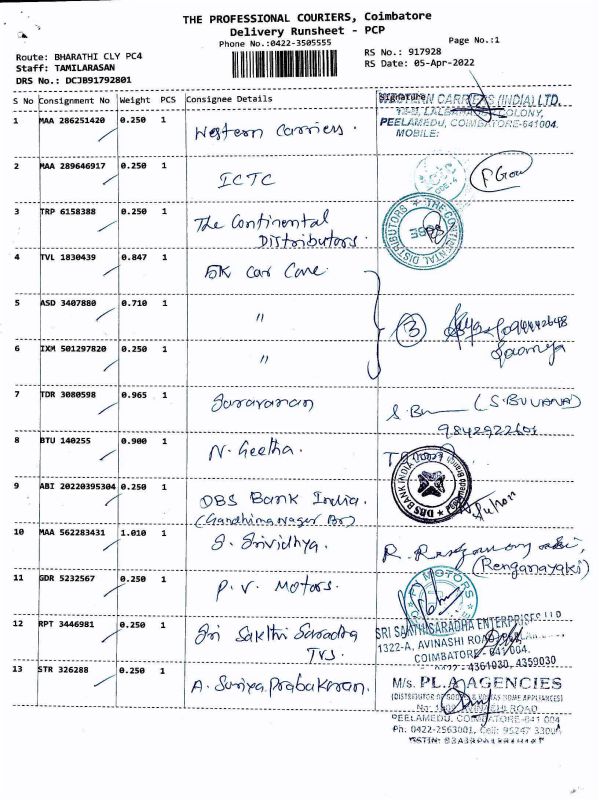 THE PROFESSIONAL COURIERS, Coimbatore
Delivery Runsheet - PCP
Phone No.:0422-3505555
Page No.:1
Route: BHARATHI CLY PC4
Staff: TAMILARASAN
DRS No.: DCJB91792801
RS No.: 917928
RS Date: 05-Apr-2022
S No Consignment No Weight PCS Consignee Details Signature
WESTERN CARRIERS (INDIA) LTD.
COLONY,
PEELAMEDU, COIMBATORE-641004.
MOBILE:
1 MAA 286251420 0.250 1 Western Carriers.
2 MAA 289646917 0.250 1 ICTC
3 TRP 6158388 0.250 1 The Continental
Distributors.
THE CONTINENTAL DISTRIBUTORS
CBE
4 TVL 1830439 0.847 1 5K Car Care
5 ASD 3407880 0.710 1 "
3
Sowmya
6 IXM 501297820 0.250 1 "
7 TDR 3080598 0.965 1 Saravanan
(S.BUVANA)
9842922601
8 BTU 140255 0.900 1 N. Geetha.
DBS BANK INDIA
9 ABI 20220395304 0.250 1 DBS Bank India.
(Gandhimanagar Br)
10 MAA 562283431 1.010 1 S. Srividhya.
(Renganayaki)
11 GDR 5232567 0.250 1 P.V. Motors.
PV MOTORS
12 RPT 3446981 0.250 1 Sri Sakthi Saradha
TVS.
SRI SAKTHI SARADHA ENTERPRISES LLP
1322-A, AVINASHI ROAD,
COIMBATORE - 641 004.
4361030, 4359030
13 STR 326288 0.250 1 A. Suriya Prabakaran.
M/s. PL.A AGENCIES
AVINASHI ROAD
PEELAMEDU, COIMBATORE-641 004
Ph: 0422-2563001, Cell: 95247 33004